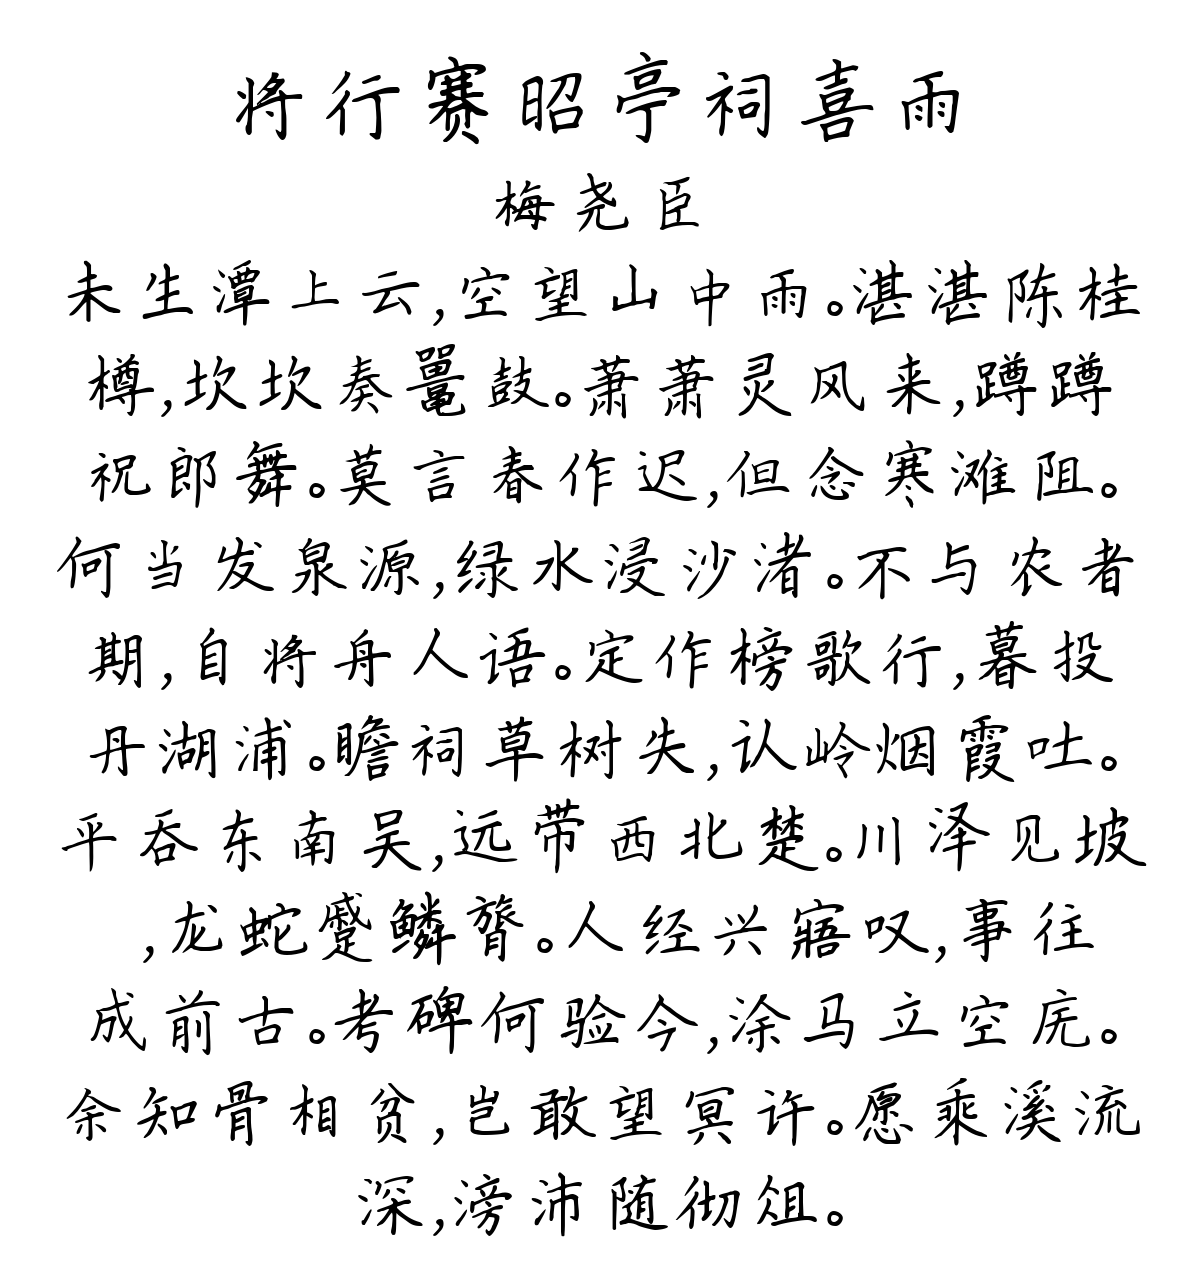 将行赛昭亭祠喜雨
梅尧臣
未生潭上云,空望山中雨。湛湛陈桂
樽,坎坎奏鼍鼓。萧萧灵风来,蹲蹲
祝郎舞。莫言春作迟,但念寒滩阻。
何当发泉源,绿水浸沙渚。不与农者
期,自将舟人语。定作榜歌行,暮投
丹湖浦。瞻祠草树失,认岭烟霞吐。
平吞东南吴,远带西北楚。川泽见坡
,龙蛇蹙鳞膂。人经兴寤叹,事往
成前古。考碑何验今,涂马立空庑。
余知骨相贫,岂敢望冥许。愿乘溪流
深,滂沛随彻俎。